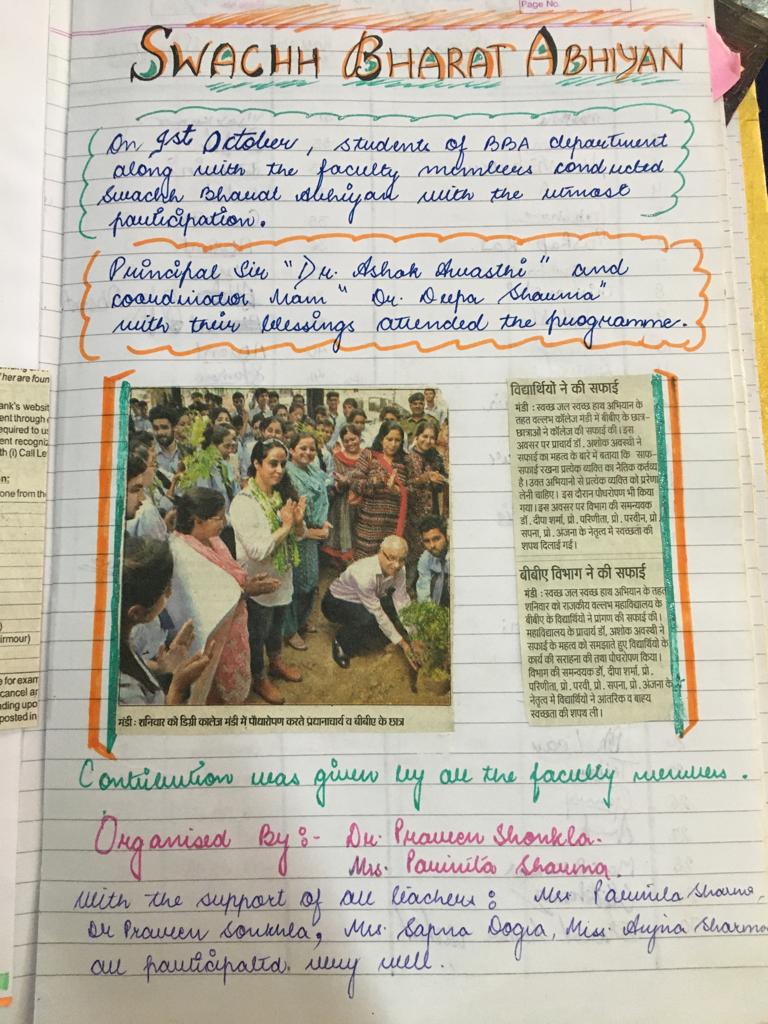 Page No.
SWACHH BHARAT ABHIYAN
On 1st October, students of BBA department
along with the faculty members conducted
Swachh Bharat Abhiyan with the utmost
participation.
Principal Sir "Dr. Ashok Awasthi" and
coordinator Mam "Dr. Deepa Sharma"
with their blessings attended the programme.
विद्यार्थियों ने की सफाई
मंडी : स्वच्छ जल स्वच्छ हाथ अभियान के
तहत वल्लभ कॉलेज मंडी में बीबीए के छात्र-
छात्राओं ने कॉलेज की सफाई की। इस
अवसर पर प्राचार्य डॉ. अशोक अवस्थी ने
सफाई का महत्व के बारे में बताया कि साफ-
सफाई रखना प्रत्येक व्यक्ति का नैतिक कर्तव्य
है। उक्त अभियानों से प्रत्येक व्यक्ति को प्रेरणा
लेनी चाहिए। इस दौरान पौधरोपण भी किया
गया। इस अवसर पर विभाग की समन्वयक
डॉ. दीपा शर्मा, प्रो. परिणीता, प्रो. परवीन, प्रो.
सपना, प्रो. अंजना के नेतृत्व में स्वच्छता की
शपथ दिलाई गई।
बीबीए विभाग ने की सफाई
मंडी : स्वच्छ जल स्वच्छ हाथ अभियान के तहत
शनिवार को राजकीय वल्लभ महाविद्यालय के
बीबीए के विद्यार्थियों ने प्रांगण की सफाई की।
महाविद्यालय के प्राचार्य डॉ. अशोक अवस्थी ने
सफाई के महत्व को समझाते हुए विद्यार्थियों के
कार्य की सराहना की तथा पौधरोपण किया।
विभाग की समन्वयक डॉ. दीपा शर्मा, प्रो.
परिणीता, प्रो. परवी, प्रो. सपना, प्रो. अंजना के
नेतृत्व में विद्यार्थियों ने आंतरिक व बाह्य
स्वच्छता की शपथ ली।
मंडी : शनिवार को डिग्री कालेज मंडी में पौधारोपण करते प्रधानाचार्य व बीबीए के छात्र
Contribution was given by all the faculty members.
Organised By :- Dr. Praveen Shonkla.
Mrs. Parinita Sharma.
With the support of all teachers : Mrs Parinita Sharma,
Dr Praveen Sonkhla, Mrs. Sapna Dogra, Miss. Anjna Sharma
all participated very well.
her are foun
ank's websit
ent through
equired to u
ent recogniz
th (i) Call Le
n:
one from th
irmour)
e for exam
cancel ar
ding upo
posted in